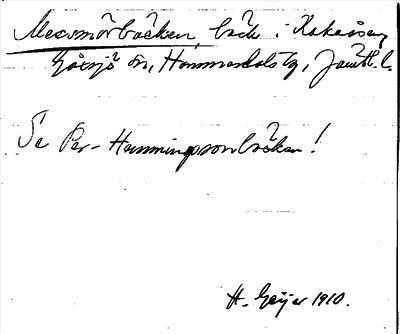 Mesmörbäcken, bäck i Kakuåsen,
Gåxsjö sn, Hammerdals tg, Jämtl. l.
Se Per-Hemmingssonbäcken!
H. Geijer 1910.